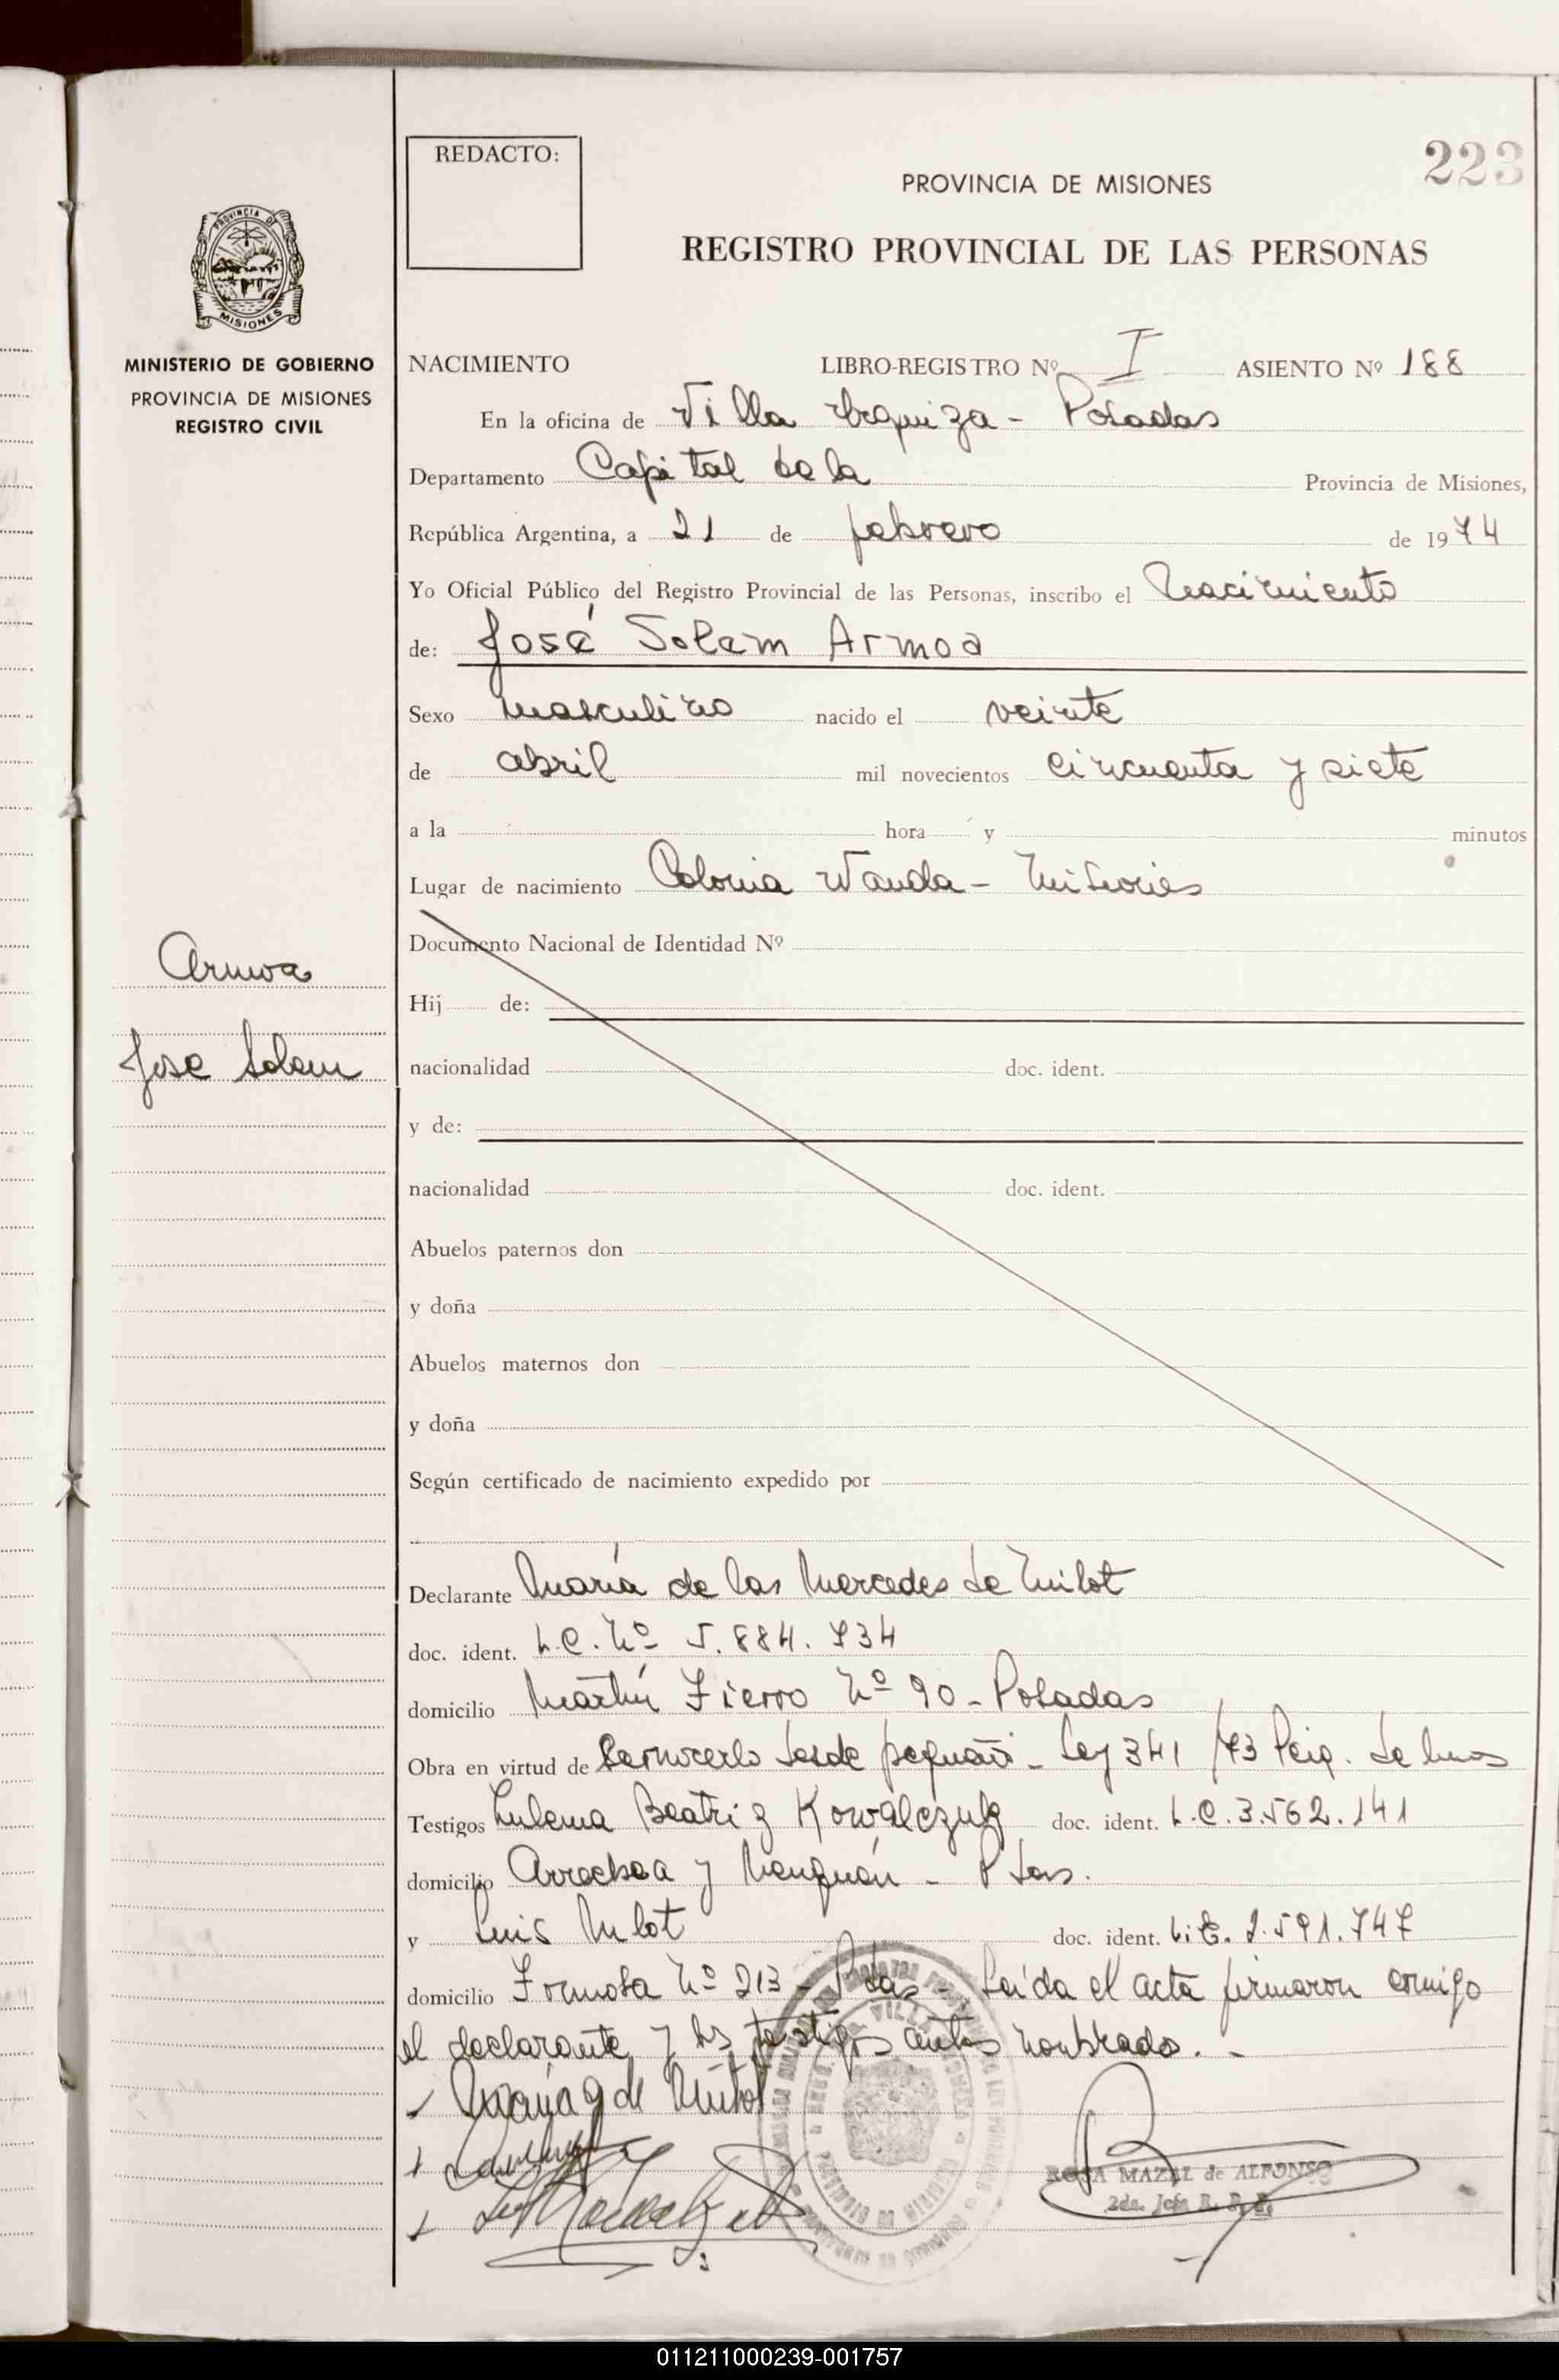 REDACTO:
223
PROVINCIA DE MISIONES
REGISTRO PROVINCIAL DE LAS PERSONAS
PROVINCIA DE
MISIONES
MINISTERIO DE GOBIERNO
PROVINCIA DE MISIONES
REGISTRO CIVIL
NACIMIENTO LIBRO-REGISTRO Nº I ASIENTO Nº 188
En la oficina de Villa Urquiza - Posadas
Departamento Capital de la Provincia de Misiones,
República Argentina, a 21 de febrero de 1974
Yo Oficial Público del Registro Provincial de las Personas, inscribo el Nacimiento
de: José Solem Armoa
Sexo masculino nacido el veinte
de abril mil novecientos cincuenta y siete
a la hora y minutos
Lugar de nacimiento Colonia Wanda - Misiones
Documento Nacional de Identidad Nº
Armoa
Hij de:
Jose Solem
nacionalidad doc. ident.
y de:
nacionalidad doc. ident.
Abuelos paternos don
y doña
Abuelos maternos don
y doña
Según certificado de nacimiento expedido por
Declarante María de las Mercedes de Milot
doc. ident. L.C. Nº 5.884.734
domicilio Martín Fierro Nº 90 - Posadas
Obra en virtud de conocerlo desde pequeño - Ley 341/73
Testigos Zulema Beatriz Kowalczuk doc. ident. L.C. 3.562.141
domicilio Arrechea y Neuquén - Pdas.
y Luis Milot doc. ident. L.E. 2.591.747
domicilio Formosa Nº 213 - Pdas - Leída el acta firmaron conmigo
el declarante y los testigos antes nombrado. -
María G de Milot
ROSA MAZAL de ALFONSO
2da. Jefa R. P. P.
011211000239-001757